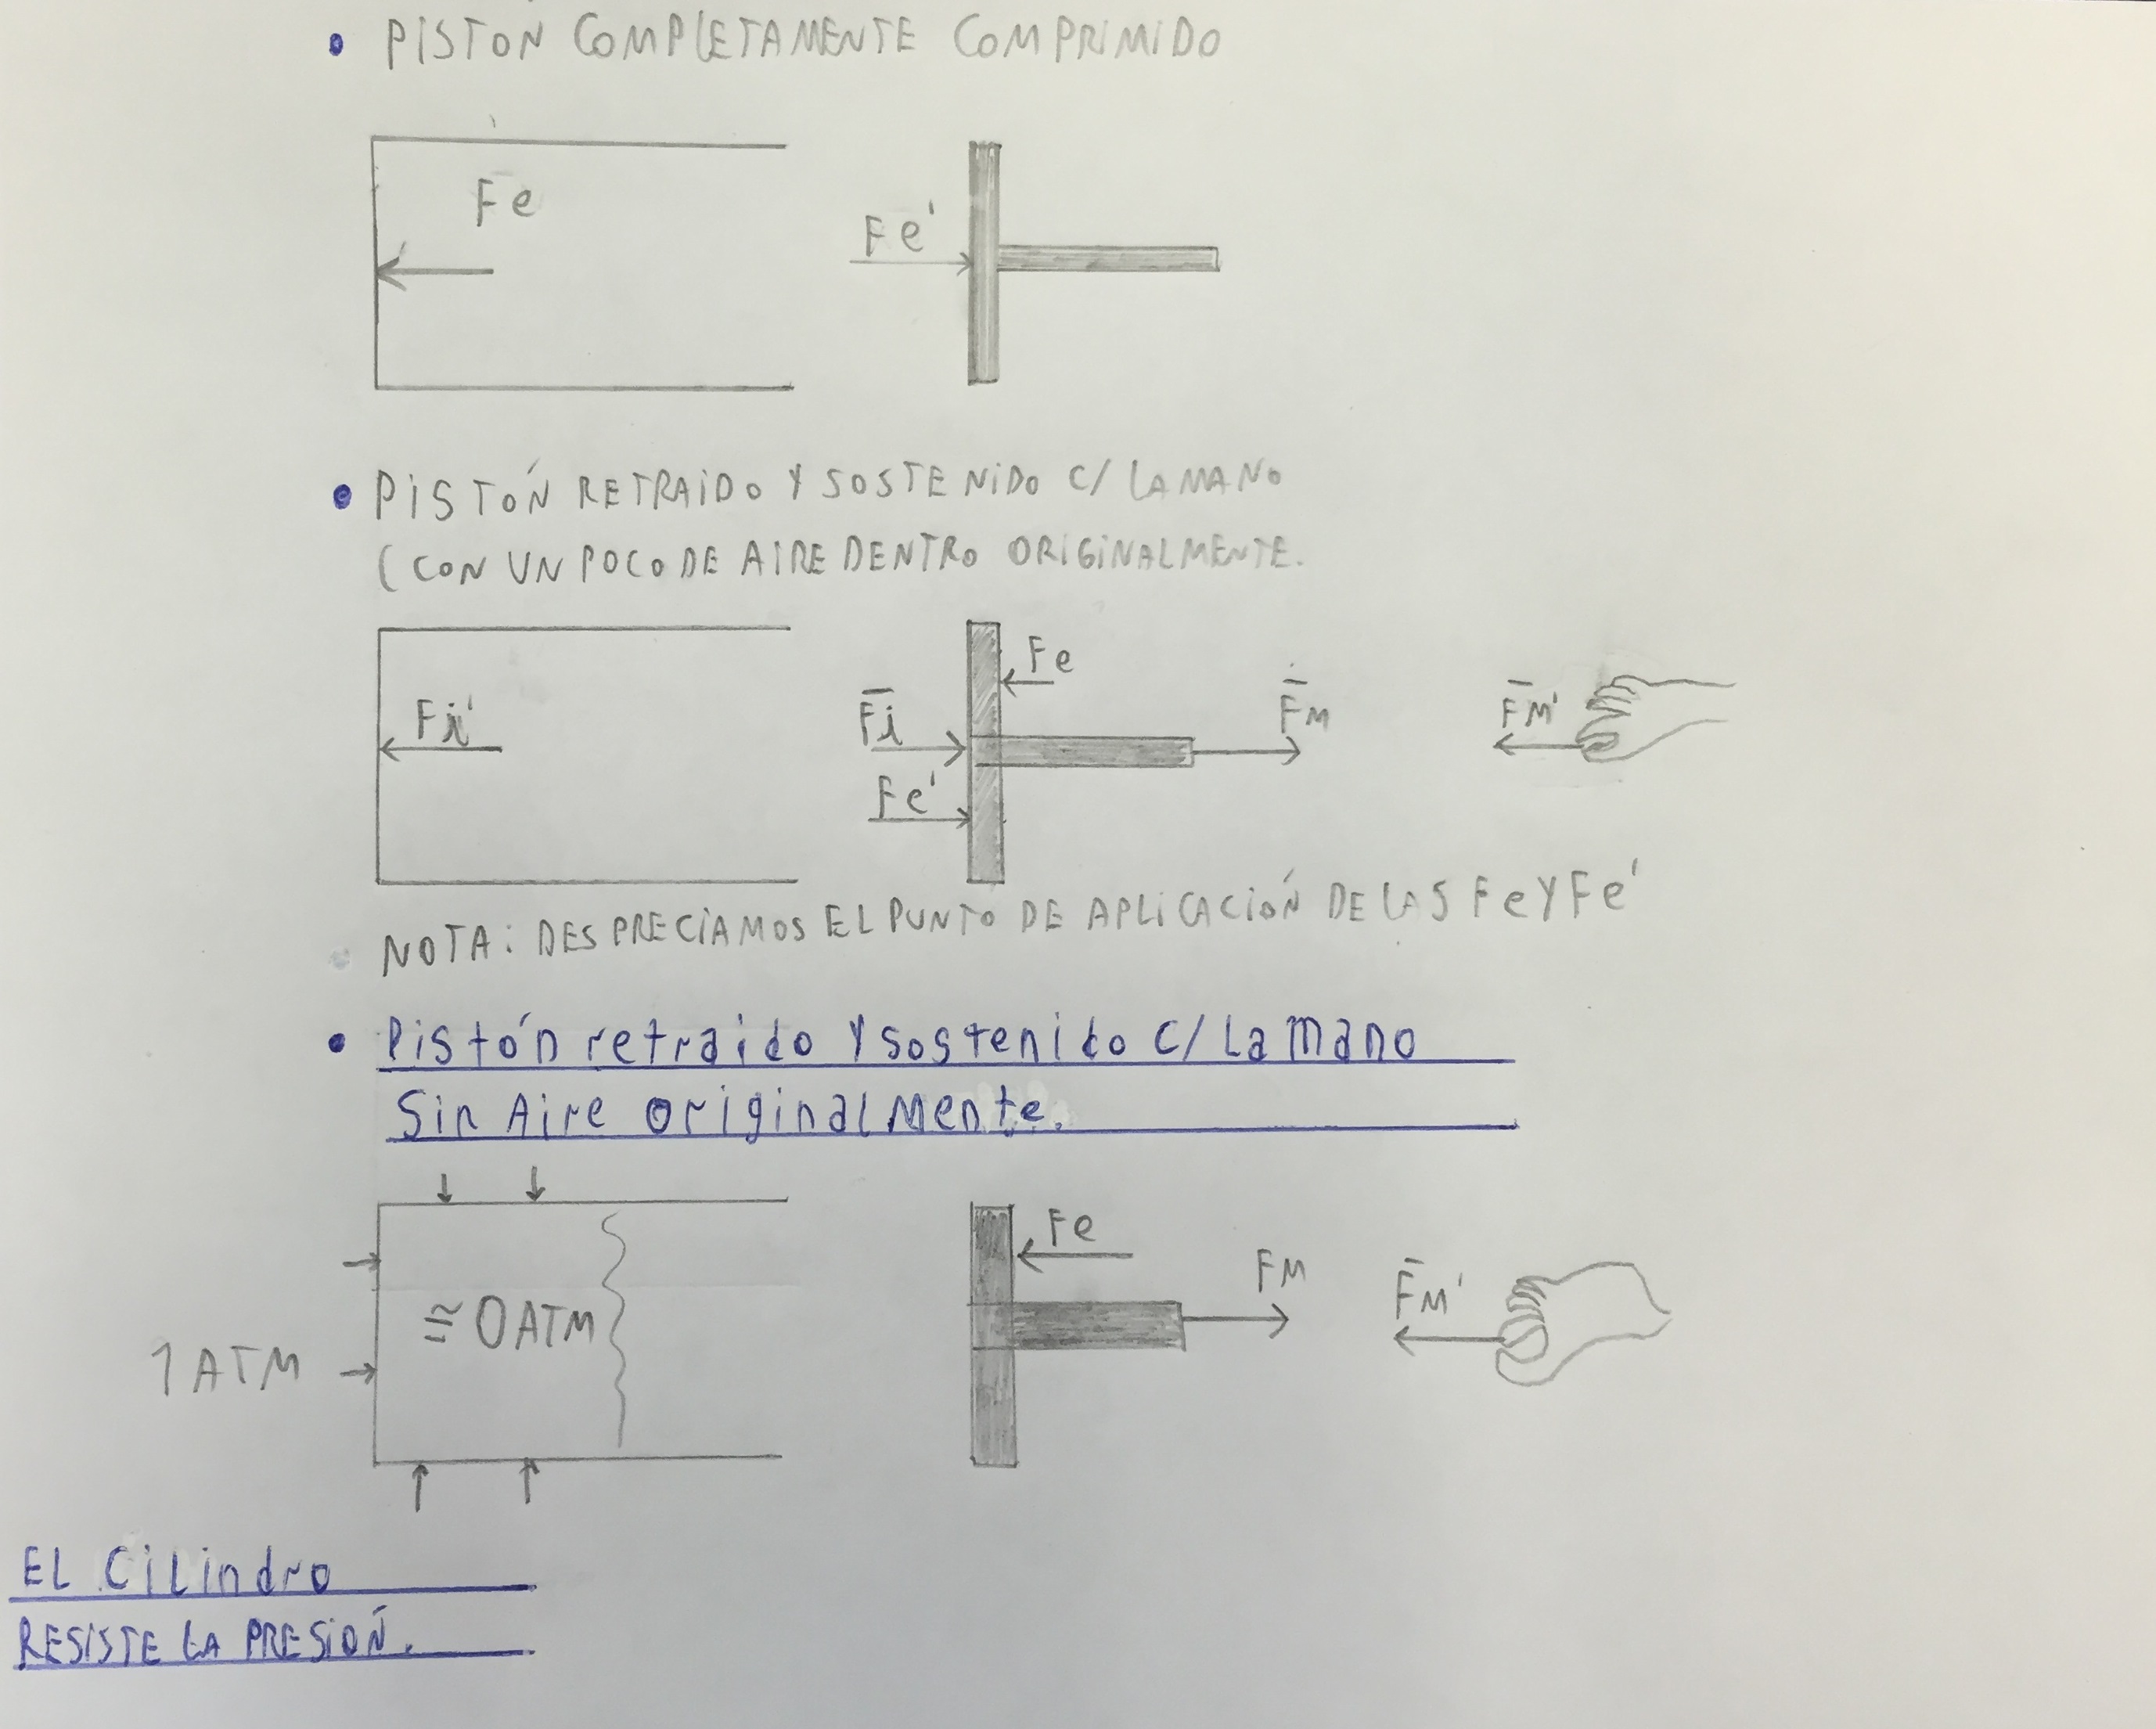 • PISTON COMPLETAMENTE COMPRIMIDO
Fe
Fe'
• PISTOŃ RETRAIDO Y SOSTENIDO C/ LA MANO
(CON UN POCO DE AIRE DENTRO ORIGINALMENTE.
Fi'
Fi
Fe'
Fe
Fm
Fm'
NOTA: DESPRECIAMOS EL PUNTO DE APLICACIOŃ DE LAS Fe Y Fe'
• Pistón retraido Y sostenido C/ La Mano
Sin Aire originalMente.
1 ATM
≅0ATM
Fe
Fm
Fm'
EL Cilindro
RESISTE LA PRESIOŃ.